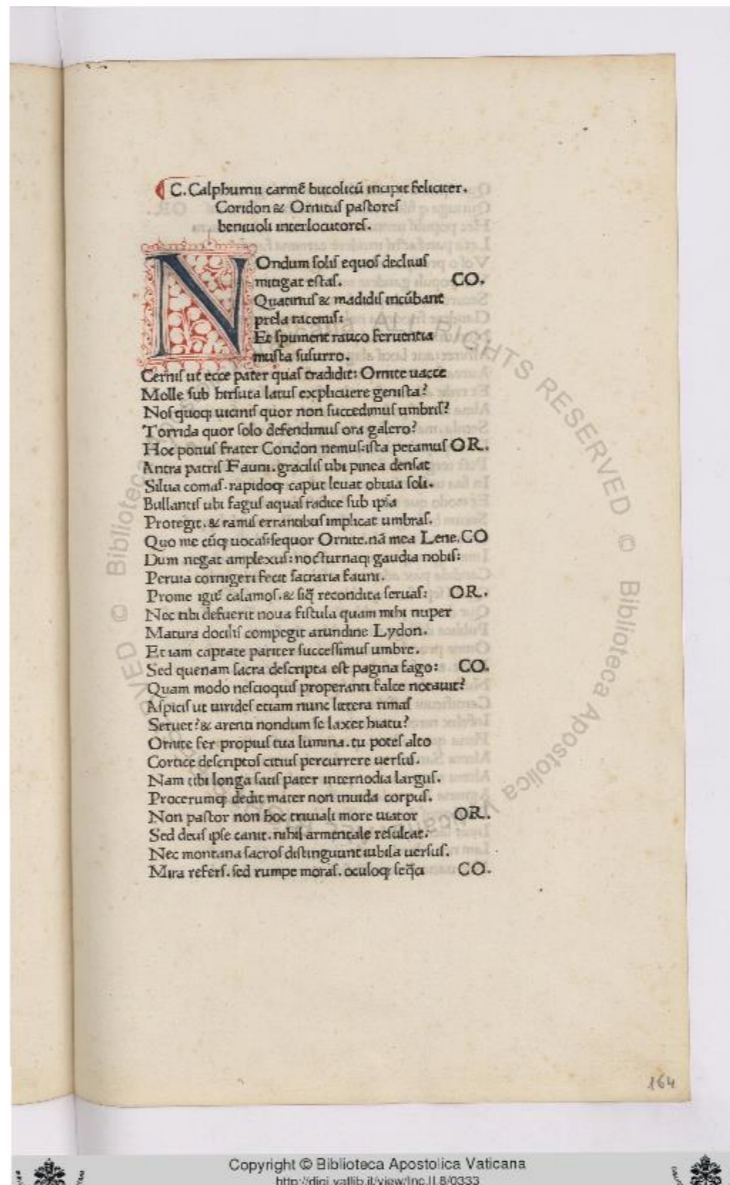 C. Calphurnii carmē bucolicū incipit feliciter.
Coridon & Ornitus pastores
beniuoli interlocutores.
NOndum solis equos decliuis
mitigat estas. CO.
Quatinus & madidis incūbant
prela racemis:
Et spument rauco feruentia
musta susurro.
Cernis ut ecce pater quas tradidit: Ornite uacce
Molle sub hirsuta latus explicuere genista?
Nos quoq; uicinis quor non succedimus umbris?
Torrida quor solo defendimus ora galero?
Hoc potius frater Coridon nemus: ista petamus OR.
Antra patris Fauni. gracilis ubi pinea densat
Silua comas. rapidoq; caput leuat obuia soli.
Bullantis ubi fagus aquas radice sub ipsa
Protegit. & ramis errantibus implicat umbras.
Quo me cūq; uocas: sequor Ornite. nā mea Lene. CO
Dum negat amplexus: nocturnaq; gaudia nobis:
Peruia cornigeri fecit sacraria fauni.
Prome igit calamos. & siq̄ recondita seruas: OR.
Nec tibi defuerit noua fistula quam mihi nuper
Matura docilis compegit arundine Lydon.
Et iam captate pariter successimus umbre.
Sed quenam sacra descripta est pagina fago: CO.
Quam modo nescioquis properanti falce notauit?
Aspicis ut uirides etiam nunc littera rimas
Seruet? & arenti nondum se laxet hiatu?
Ornite fer propius tua lumina. tu potes alto
Cortice descriptos citius percurrere uersus.
Nam tibi longa satis pater internodia largus.
Procerumq; dedit mater non inuida corpus.
Non pastor non hoc triuiali more uiator OR.
Sed deus ipse canit. nihil armentale resultat.
Nec montana sacros distinguunt iubila uersus.
Mira refers. sed rumpe moras. oculoq; seq̄ci CO.
164
ALL RIGHTS RESERVED © Biblioteca Apostolica Vaticana
Copyright © Biblioteca Apostolica Vaticana
http://digi.vatlib.it/view/Inc.II.8/0333